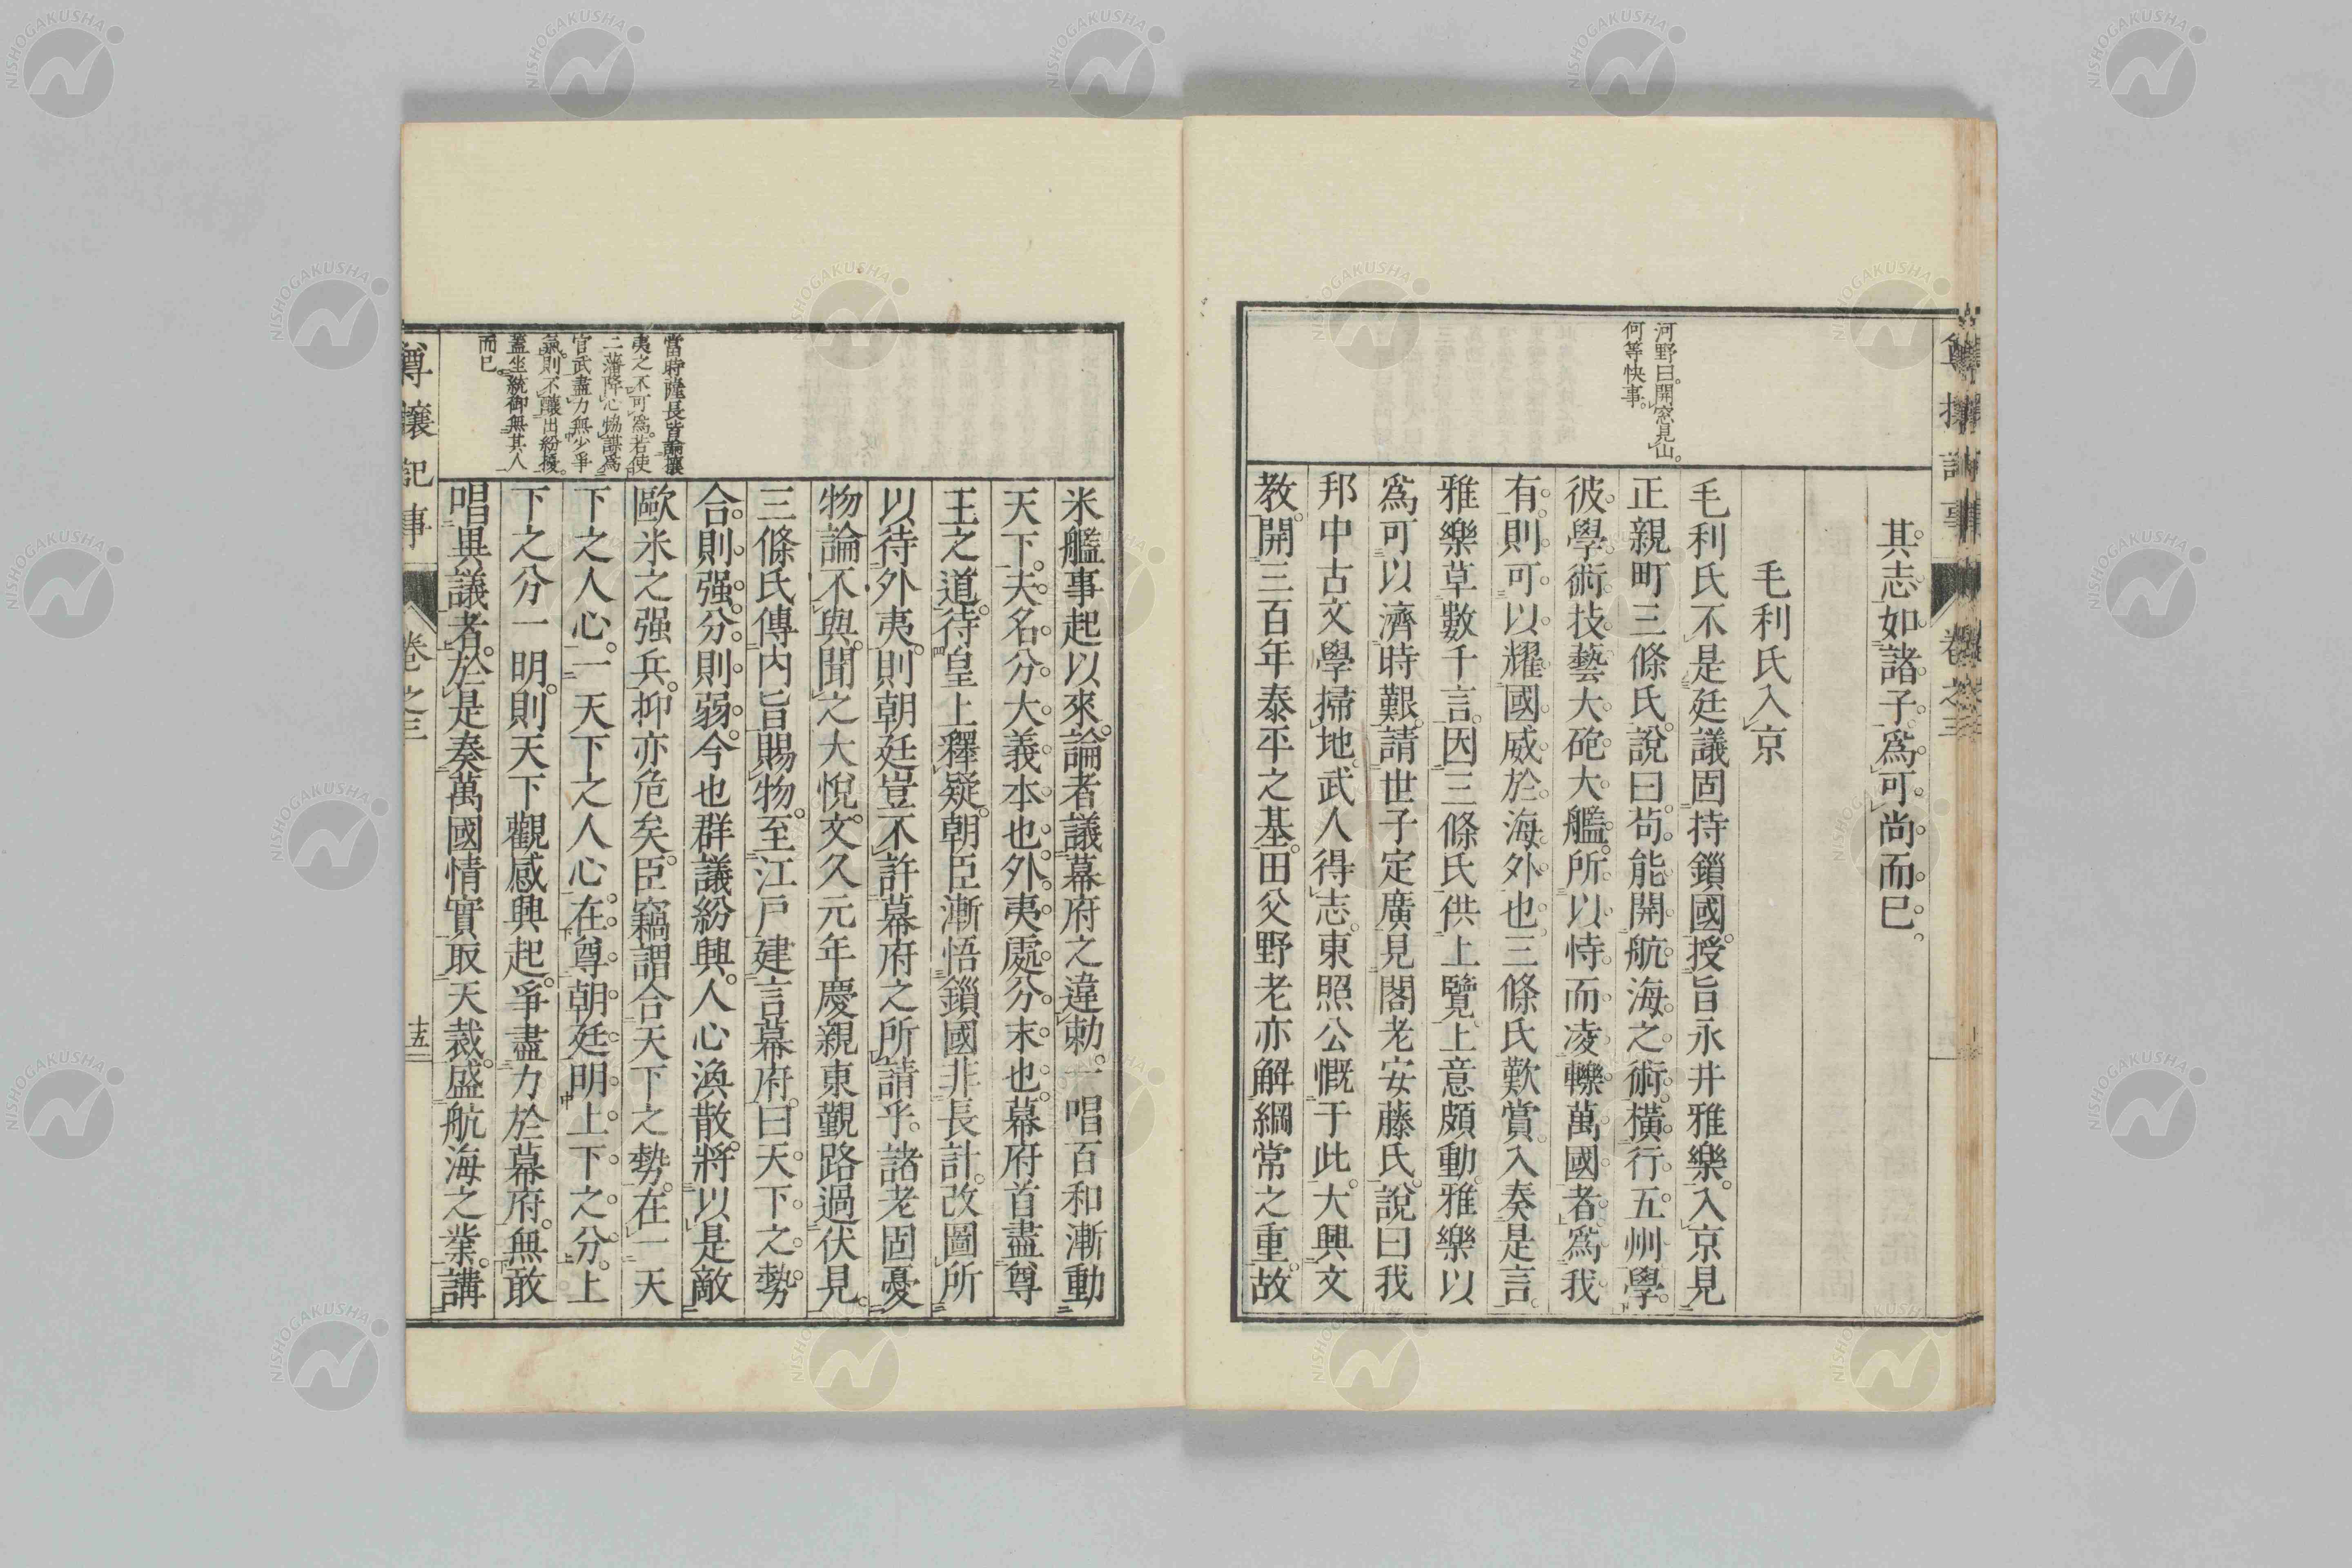 尊攘記事
卷之三
河野曰。開窓見山。
何等快事。
其志如諸子爲可尚而已。
毛利氏入京
毛利氏不是廷議固持鎖國。授旨永井雅樂。入京見
正親町三條氏。說曰。苟能開航海之術。橫行五州。學
彼學術技藝大砲大艦。所以恃而凌轢萬國者。爲我
有。則可以耀國威於海外也。三條氏歎賞。入奏是言。
雅樂草數千言。因三條氏供上覽。上意頗動。雅樂以
爲可以濟時艱。請世子定廣見閣老安藤氏。說曰。我
邦中古文學掃地。武人得志。東照公慨于此。大興文
教。開三百年泰平之基。田父野老亦解綱常之重。故
當時薩長首論攘
夷之不可爲。若使
二藩降心協謀爲
官武盡力無少爭
氣。則不釀出紛擾。
蓋坐統御無其人
而已。
米艦事起以來。論者議幕府之違勅。一唱百和漸動
天下。夫名分大義本也。外夷處分末也。幕府首盡尊
王之道。待皇上釋疑。朝臣漸悟鎖國非長計。改圖所
以待外夷。則朝廷豈不許幕府之所請乎。諸老固憂
物論不與。聞之大悅。文久元年慶親東覲路過伏見。
三條氏傳內旨賜物。至江戶建言幕府。曰。天下之勢
合則强。分則弱。今也群議紛興。人心渙散。將以是敵
歐米之强兵。抑亦危矣。臣竊謂合天下之勢。在一天
下之人心。一天下之人心。在尊朝廷明上下之分。上
下之分一明。則天下觀感興起。爭盡力於幕府。無敢
唱異議者。於是奏萬國情實取天裁。盛航海之業。講
尊攘記事
卷之三
十五